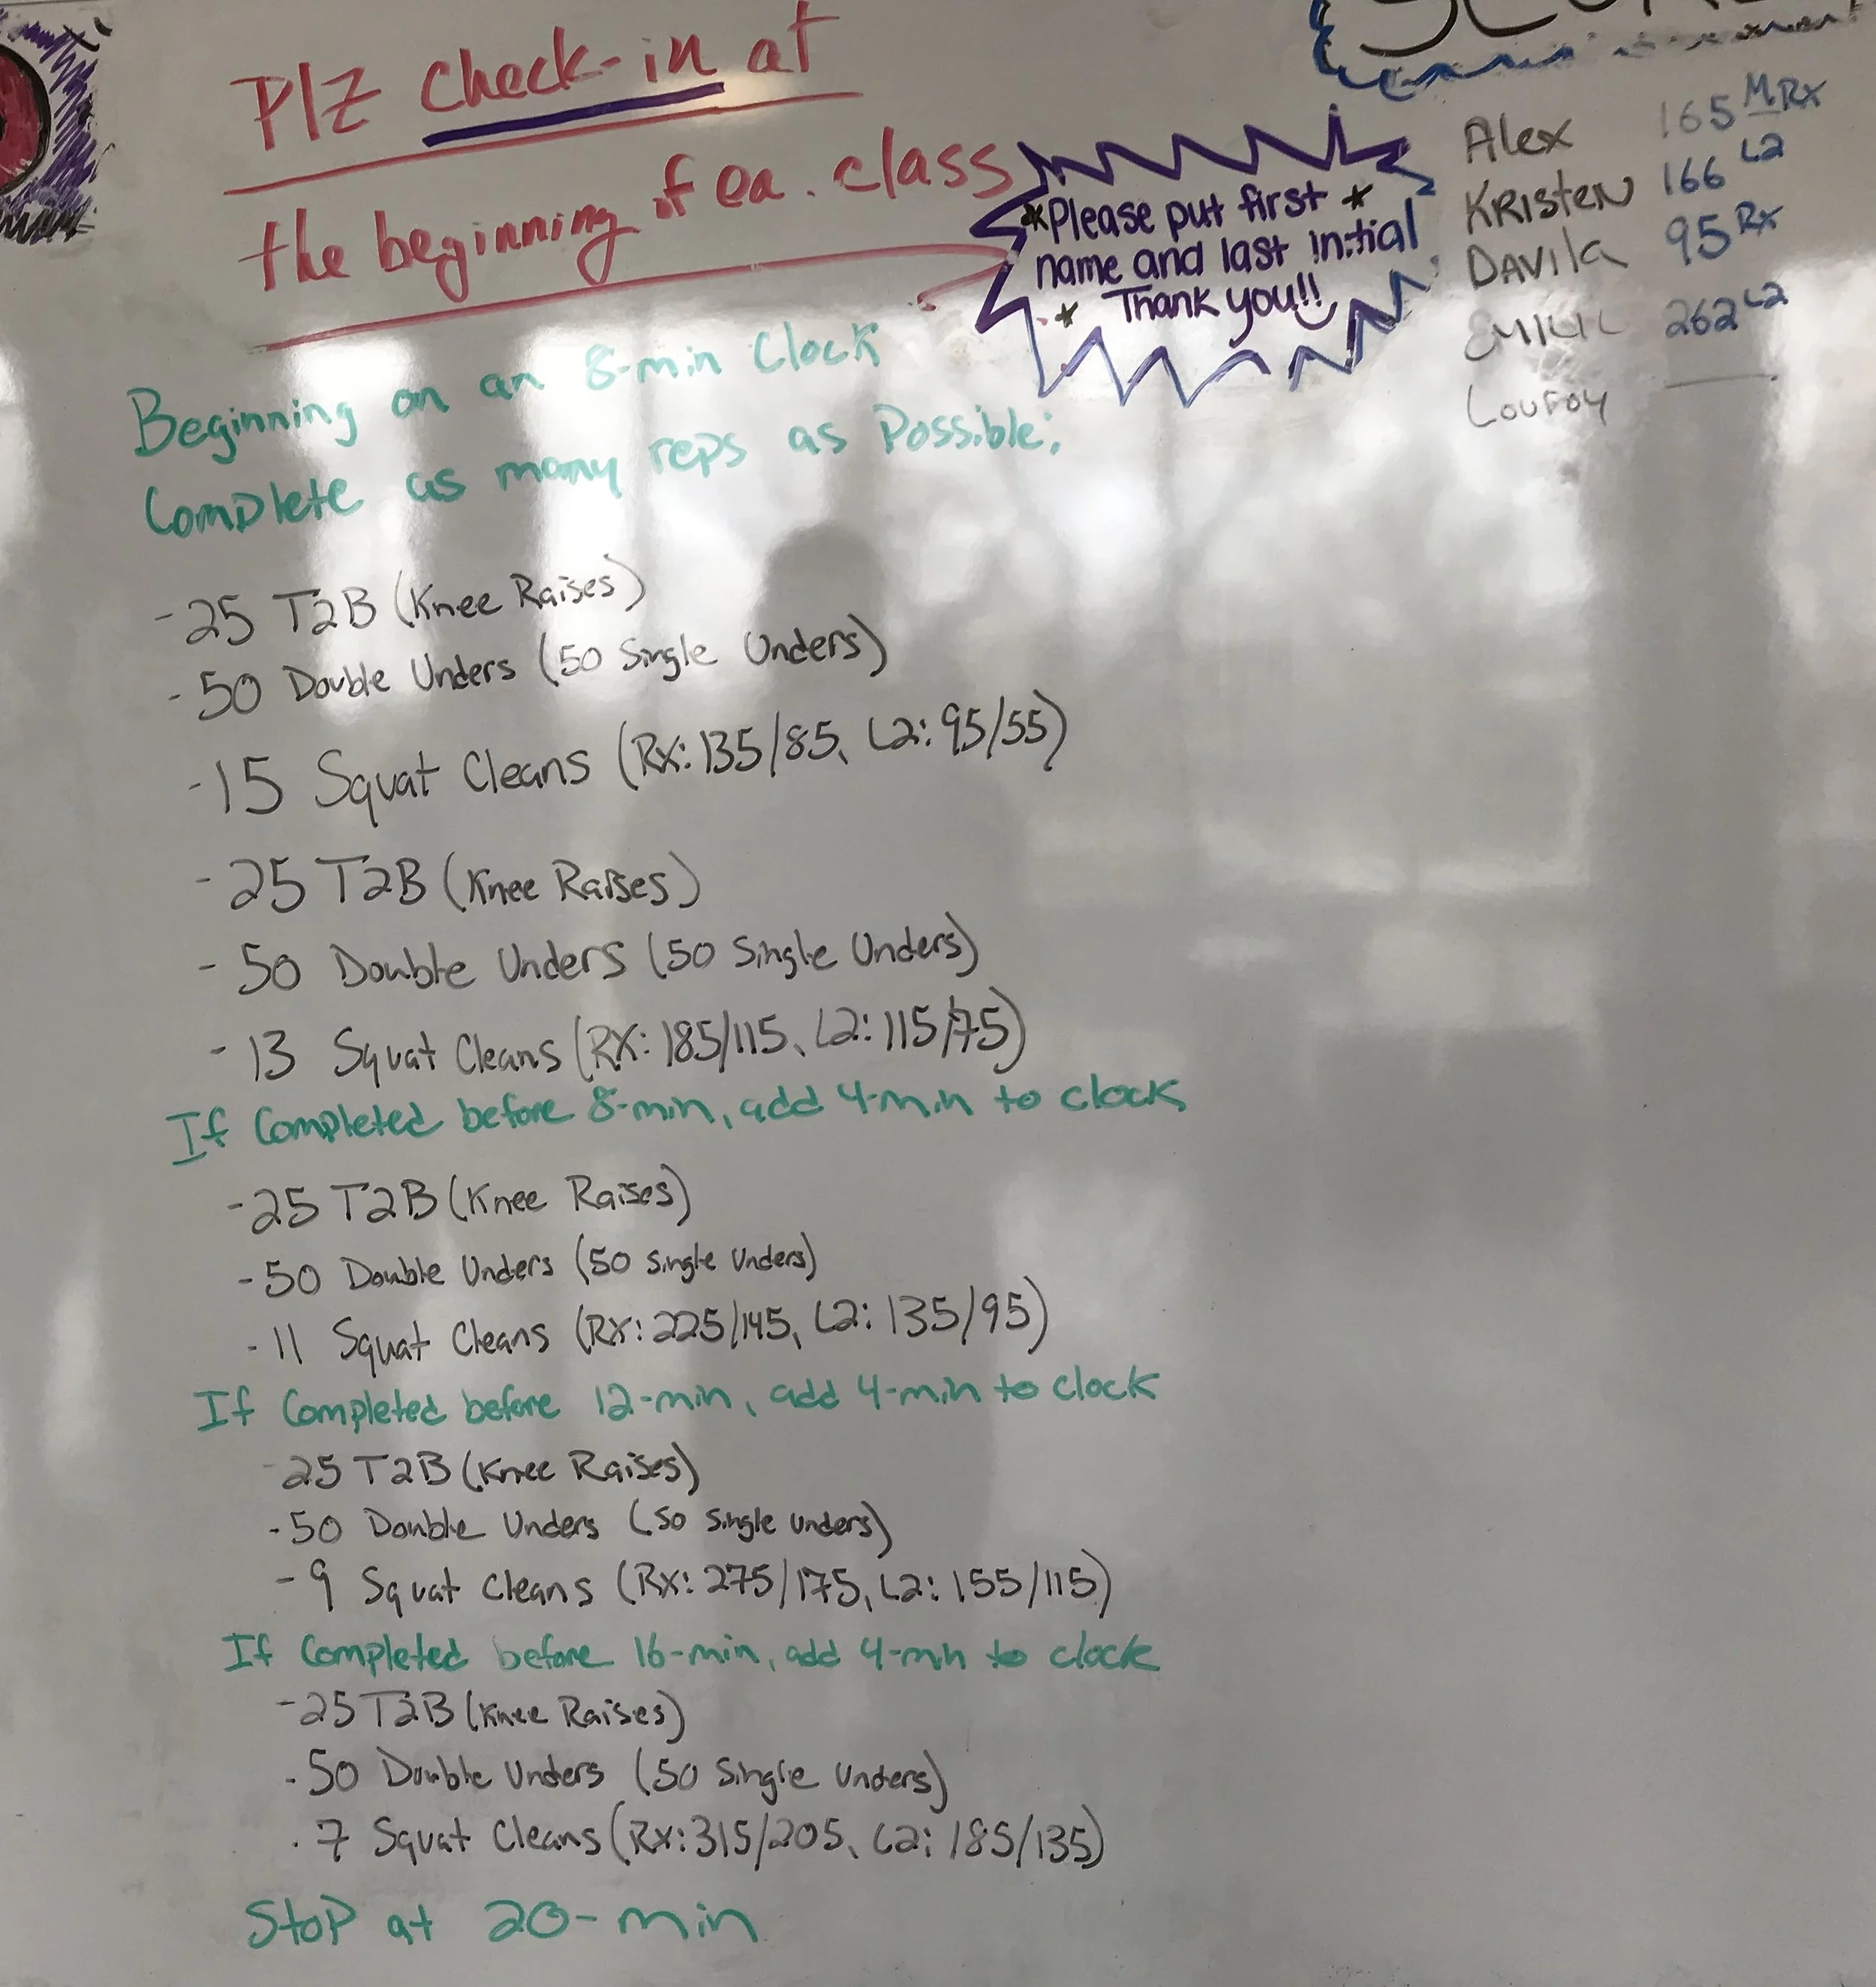 Plz check-in at
the beginning of ea. class
*Please put first *
name and last initial
* Thank you!!
Alex 165 M.RX
KRisteN 166 L2
DAVila 95 RX
262 L2
Loufoy
Beginning on an 8-min Clock
Complete as many reps as Possible:
-25 T2B (Knee Raises)
-50 Double Unders (50 Single Unders)
-15 Squat Cleans (Rx: 135/85, L2: 95/55)
-25 T2B (Knee Raises)
-50 Double Unders (50 Single Unders)
-13 Squat Cleans (RX: 185/115, L2: 115/75)
If Completed before 8-min, add 4-min to clock
-25 T2B (Knee Raises)
-50 Double Unders (50 Single Unders)
-11 Squat Cleans (Rx: 225/145, L2: 135/95)
If Completed before 12-min, add 4-min to clock
-25 T2B (Knee Raises)
-50 Double Unders (50 Single Unders)
-9 Squat Cleans (Rx: 275/175, L2: 155/115)
If Completed before 16-min, add 4-min to clock
-25 T2B (Knee Raises)
-50 Double Unders (50 Single Unders)
-7 Squat Cleans (Rx: 315/205, L2: 185/135)
Stop at 20-min